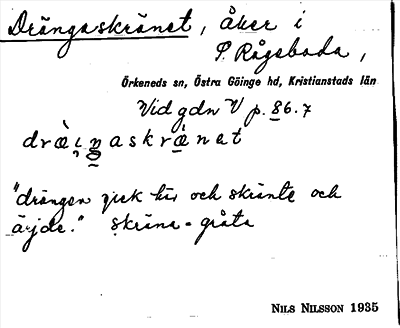 Drängaskränet, åker i
P. Rågeboda,
Örkeneds sn, Östra Göinge hd, Kristianstads län
Vid gdn V p. 86.7
"drängen gick här och skränte och
skräna = gråta
NILS NILSSON 1935